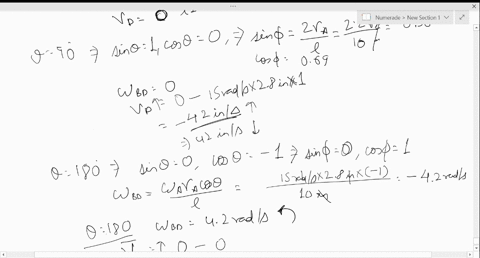 Numerade > New Section 1
V_D = 0
θ=90° ⇒ sinθ=1, cosθ=0, ⇒ sinφ = 2r_A/l = 2·2.8/10 = 0.56
cosφ: 0.69
ω_BD = 0
V_D ↑ = 0 - 15 rad/s × 2.8 in × 1
= -42 in/s ↑
⇒ 42 in/s ↓
θ=180° ⇒ sinθ=0, cosθ=-1 ⇒ sinφ=0, cosφ=1
ω_BD = ω_A r_A cosθ / l = 15 rad/s × 2.8 in × (-1) / 10 in = -4.2 rad/s
θ:180 ω_BD = 4.2 rad/s ↺
↑ 0 - 0